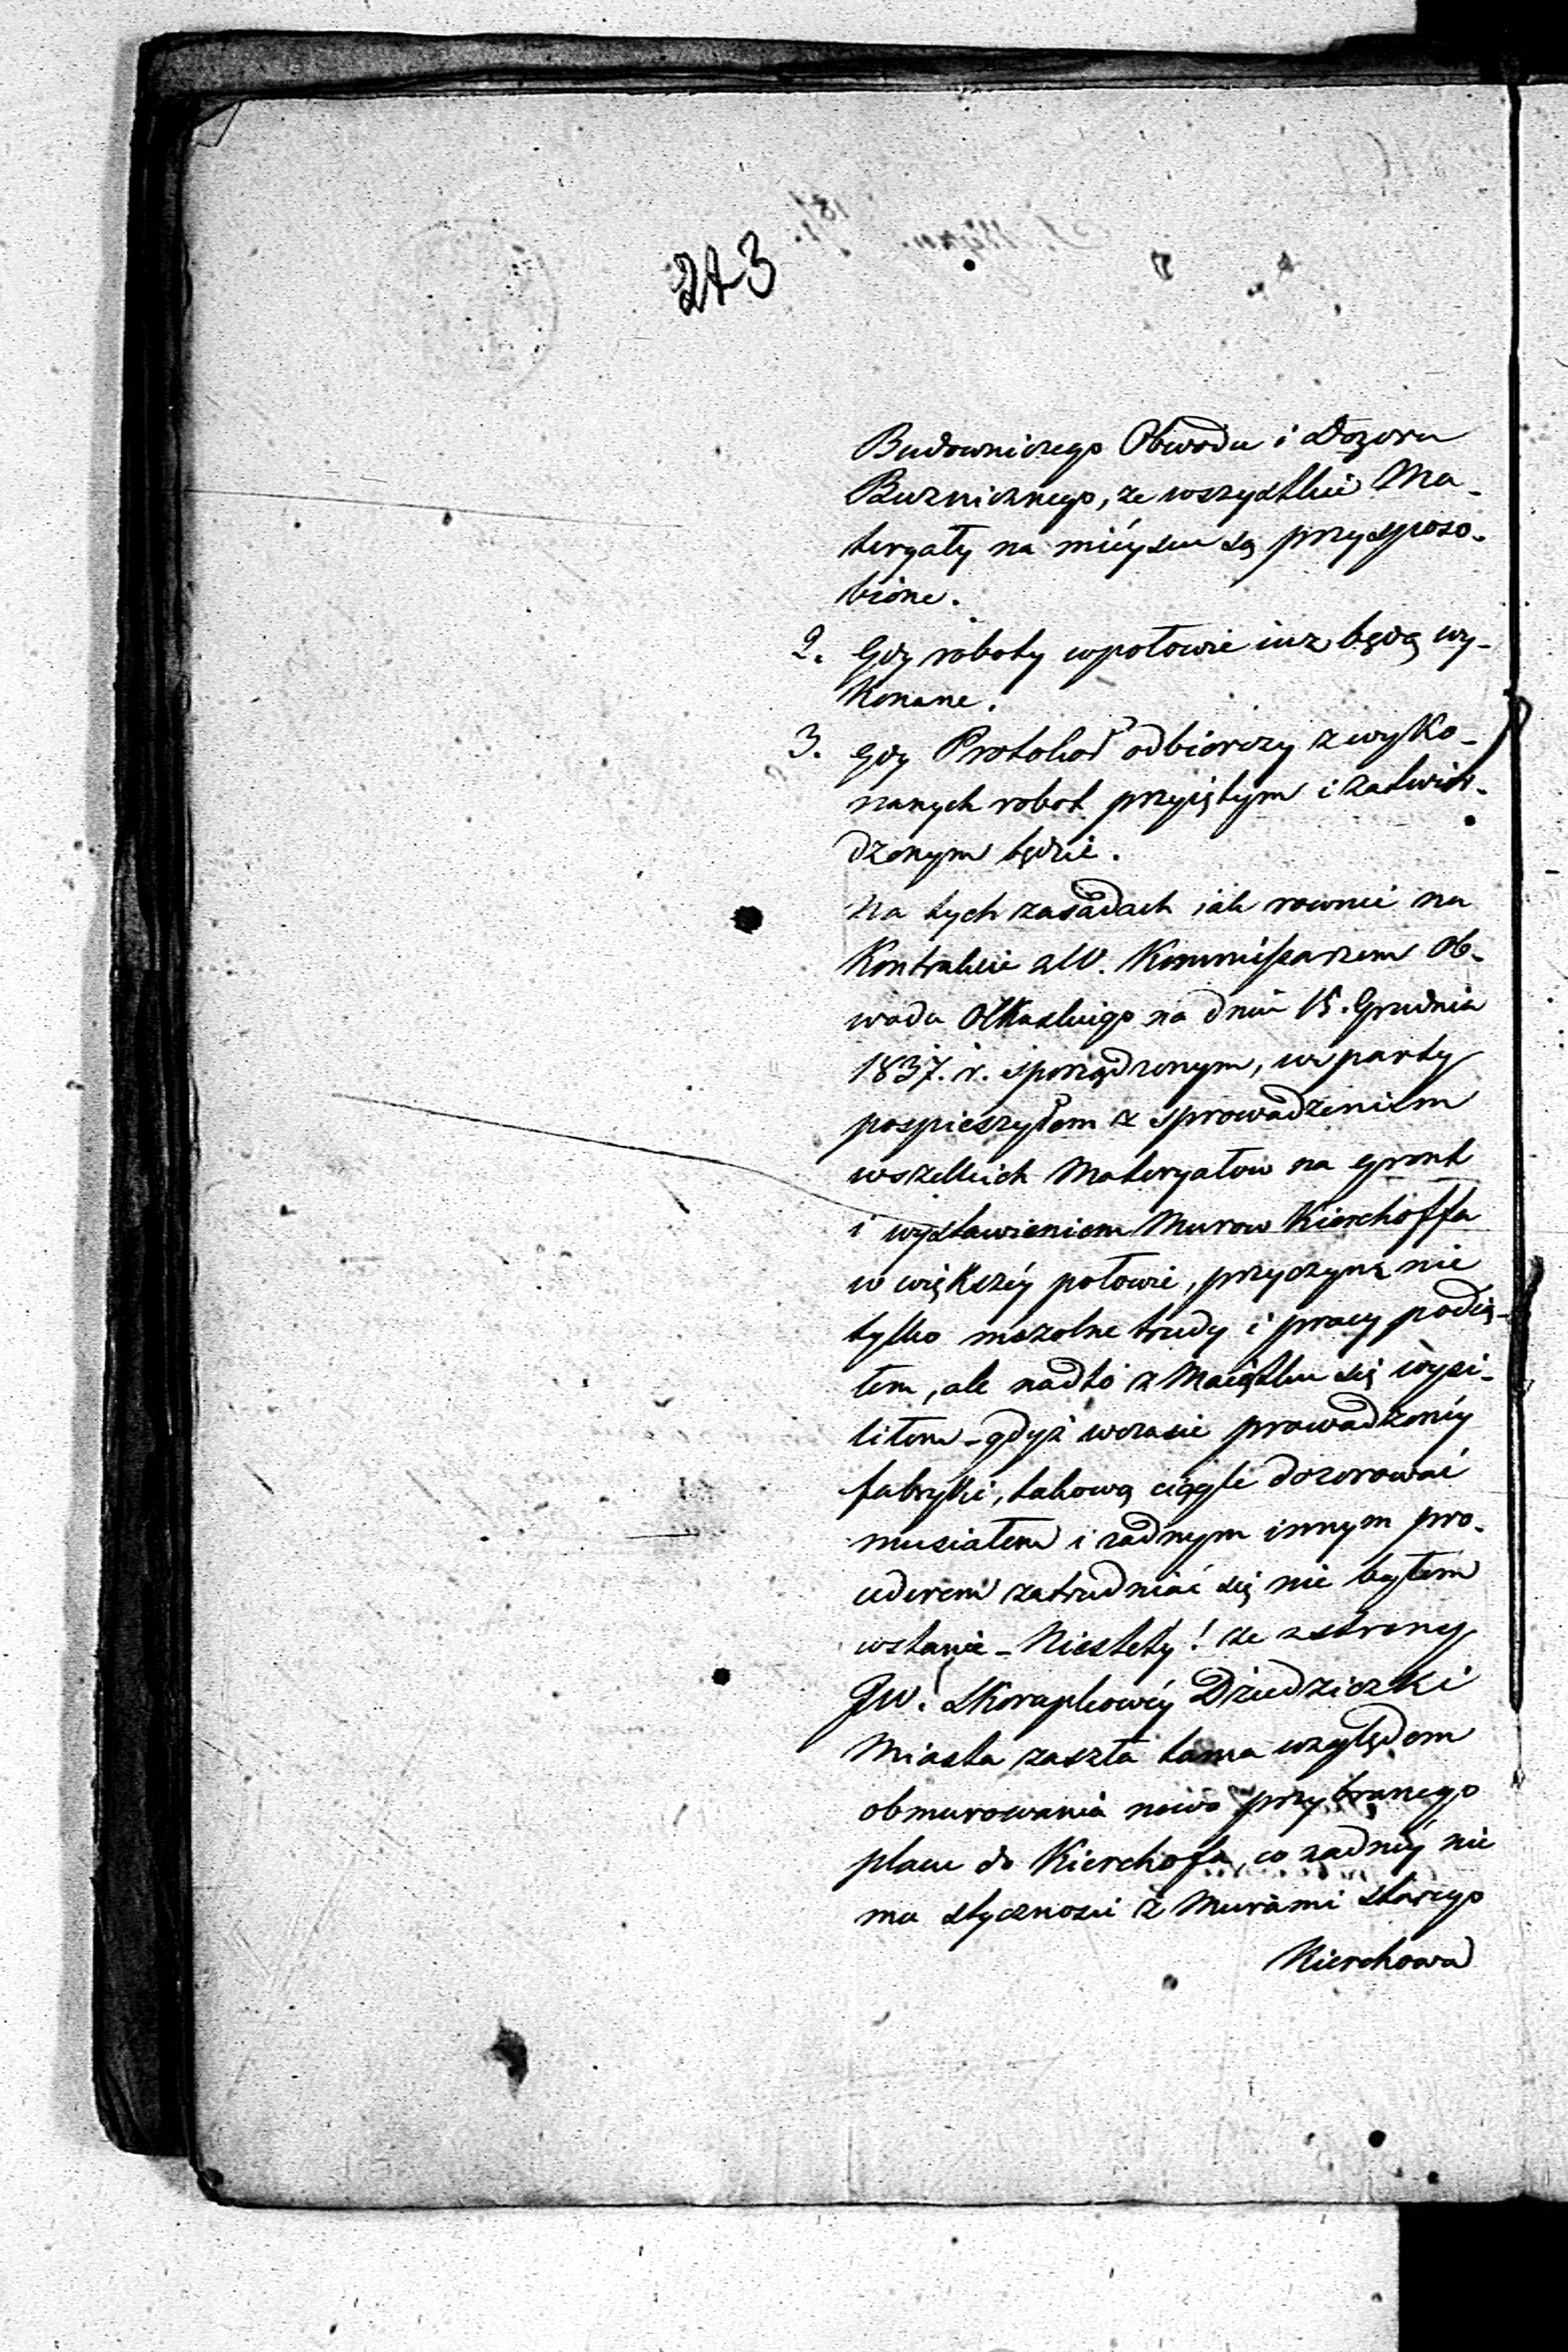 273
Budowniczego Obwodu i Dozoru
Bużnicznego, że wszystkie Ma-
teryały na mieyscu są przysposo-
bione.
2. Gdy roboty wpołowie iuz będą wy-
konane.
3. gdy Protokoł odbiorczy z wyko-
nanych robot przyiętym i zatwier-
dzonym będzie.
Na tych zasadach iak rownie na
Kontrakcie z W. Kommissarzem Ob-
wodu Olkuskiego na dniu 15. Grudnia
1837. r. sporządzonym, wsparty
pospieszyłem z sprowadzeniem
wszelkich Materyałow na gront
i wystawieniem Murow Kierchoffa
w większéy połowie, przyczyną nie
tylko mozolne trudy i pracy podią-
łem, ale nadto z Maiątku się wysi-
liłem – gdyż wczasie prowadzenéy
fabryki, takową ciągle dozorować
musiałem i zadnym innym pro-
cederem zatrudniać się nie byłem
wstanie – Niestety! że zstrony
JW. Skorupkowéy Dziedziczki
Miasta zaszła tama względem
obmurowania nowo przybranego
placu do Kierchofa, co zadnéy nie
ma styczności z Murami starego
Kierchowa